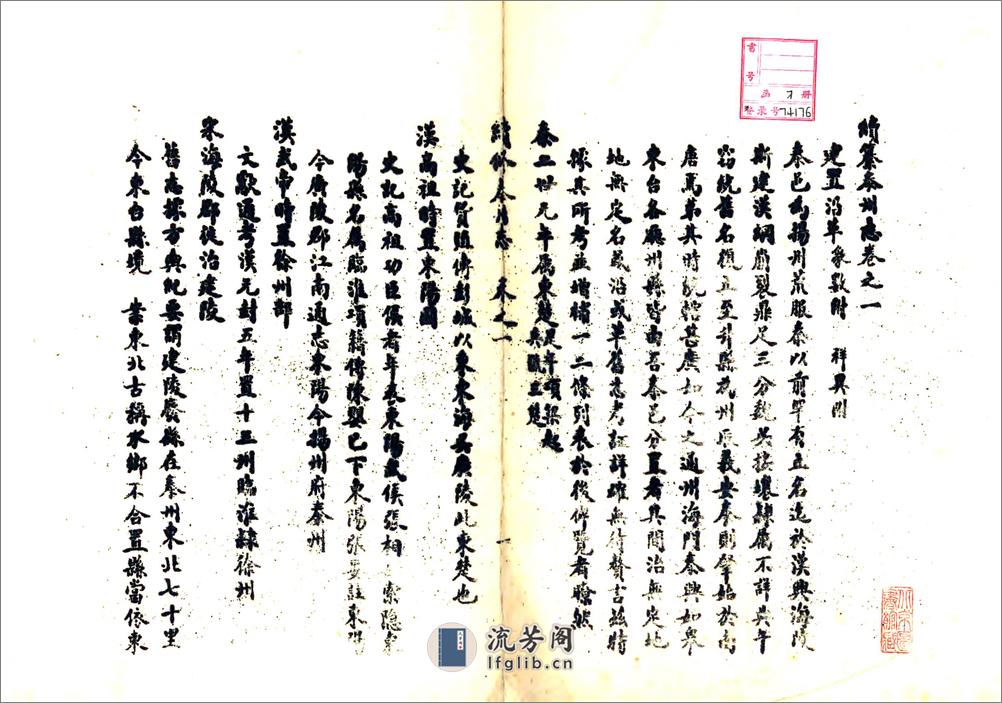 續纂泰州志卷之一
建置沿革 象數附 祥異附
泰邑為揚州荒服秦以前罕有立名迄於漢興海陵
斯建漢綱崩裂鼎足三分魏吳接壤隸屬不詳典午
統舊名復立至升縣為州辰義安泰則肇始於南
唐焉第其時統轄甚廣如今之通州海門泰興如皋
東台各廳州縣皆由吾泰邑分置者其間治無定地
地無定名或沿或革舊志考証詳確無待贅言茲特
據其所考並增補一二條列表於後俾覽者瞭然
秦二世元年屬東楚是年項梁起兵號立楚
續修泰州志 卷之一 一
史記貨殖傳彭城以東東海吳廣陵此東楚也
漢高祖時置東陽國
史記高祖功臣侯者年表東陽武侯張相 索隱東
陽縣名屬臨淮項籍傳陳嬰已下東陽張晏註東陽
今廣陵郡江南通志東陽今揚州府泰州
漢武帝時置徐州部
文獻通考漢元封五年置十三州臨淮隸徐州
宋海陵郡徙治建陵
舊志據方輿紀要謂建陵廢縣在泰州東北七十里
今東台縣境 業東北古稱水鄉不合置縣當依東
書號
函 1 册
登录号 74176
流芳阁
lfglib.cn